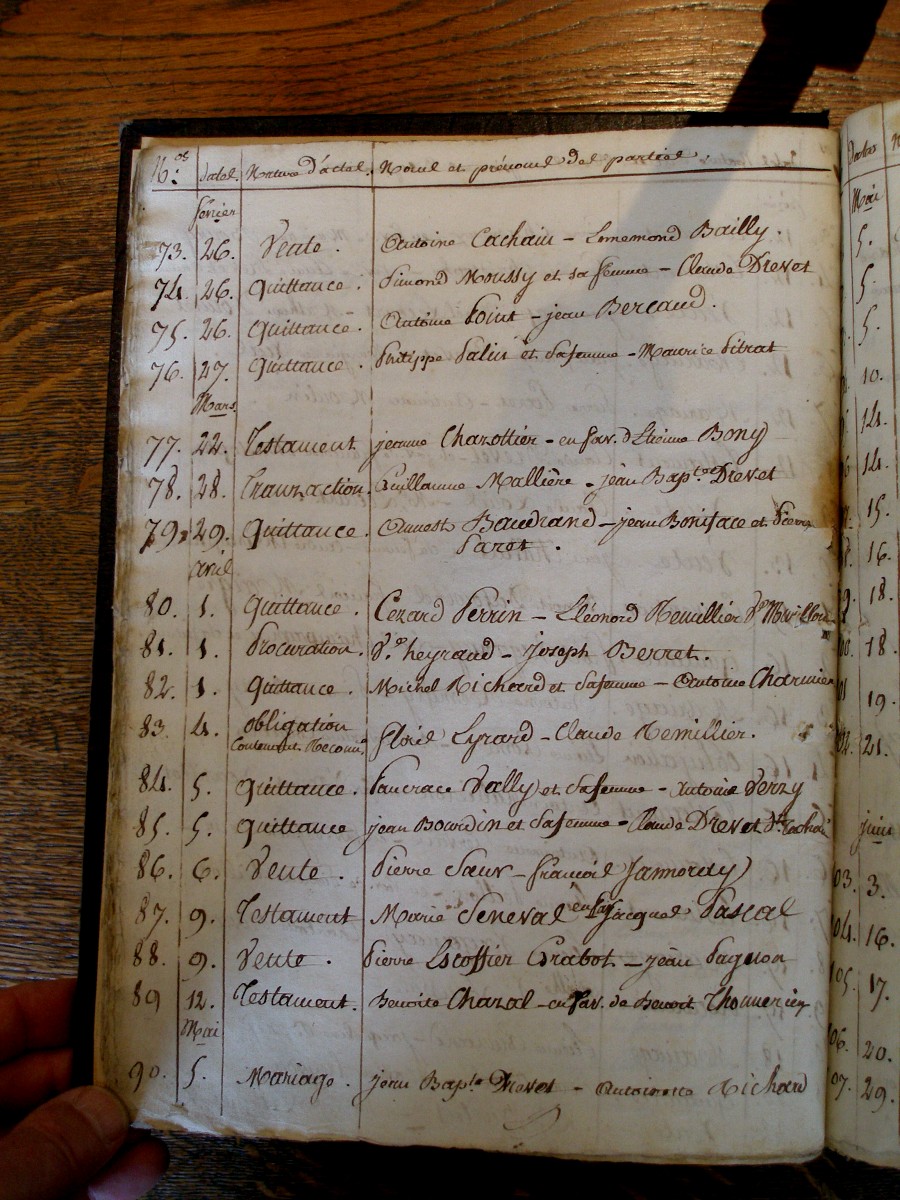 N.os dates. Nature d'actes. Noms et prénoms des parties.
février
73. 26. Vente. Antoine Cachain - Bailly.
74. 26. Quittance. Simond Moussy et sa femme - Claude Drevet
75. 26. Quittance. Antoine Point - jean Bercaud.
76. 27. Quittance. Philippe Palus et sa femme - Maurice Pitrat
Mars
77. 22. Testament jeanne Charottier - en fav. d'Etienne Bony
78. 28. Tranzaction. Guillaume Mallière - jean Bap.te Drevet
79. 29. Quittance. Baudrand - jean Boniface et pierre
Paret.
avril
80. 1. Quittance. Cezard Perrin - Léonord Remillier
81. 1. Procuration. V.e heyraud - joseph Berret.
82. 1. Quittance. Michel Richard et sa femme - Antoine Charmien
83. 4. obligation
Contenant Reconn. floris Eyrard - Claude Remillier.
84. 5. Quittance. Pancrace Vally et sa femme - Antoine Verzy
85. 5. Quittance jean Bourdin et sa femme - Claude Drevet
86. 6. Vente. Pierre Sœur - françois Jannoray
87. 9. Testament Marie Seneval en fav. jacques Pascal
88. 9. Vente. Pierre Escoffier Crabot - jean Pagnon
89 12. Testament. Benoite Chazal - en fav. de Benoit
Mai
90. 5. Mariage. jean Bap.te Drevet - antoinette Richard
dates
Mai
5.
5.
5.
10.
14.
14.
15.
16.
18.
18.
19.
21.
juin
03. 3.
04. 16.
105. 17.
06. 20.
07. 29.